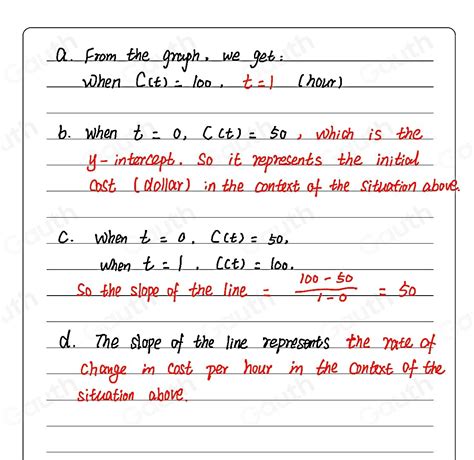 a. From the graph, we get:
when C(t) = 100, t = 1 (hour)
b. when t = 0, C(t) = 50, which is the
y-intercept. So it represents the initial
cost (dollar) in the context of the situation above.
c. when t = 0, C(t) = 50,
when t = 1, C(t) = 100.
So the slope of the line = \frac{100 - 50}{1 - 0} = 50
d. The slope of the line represents the rate of
change in cost per hour in the context of the
situation above.